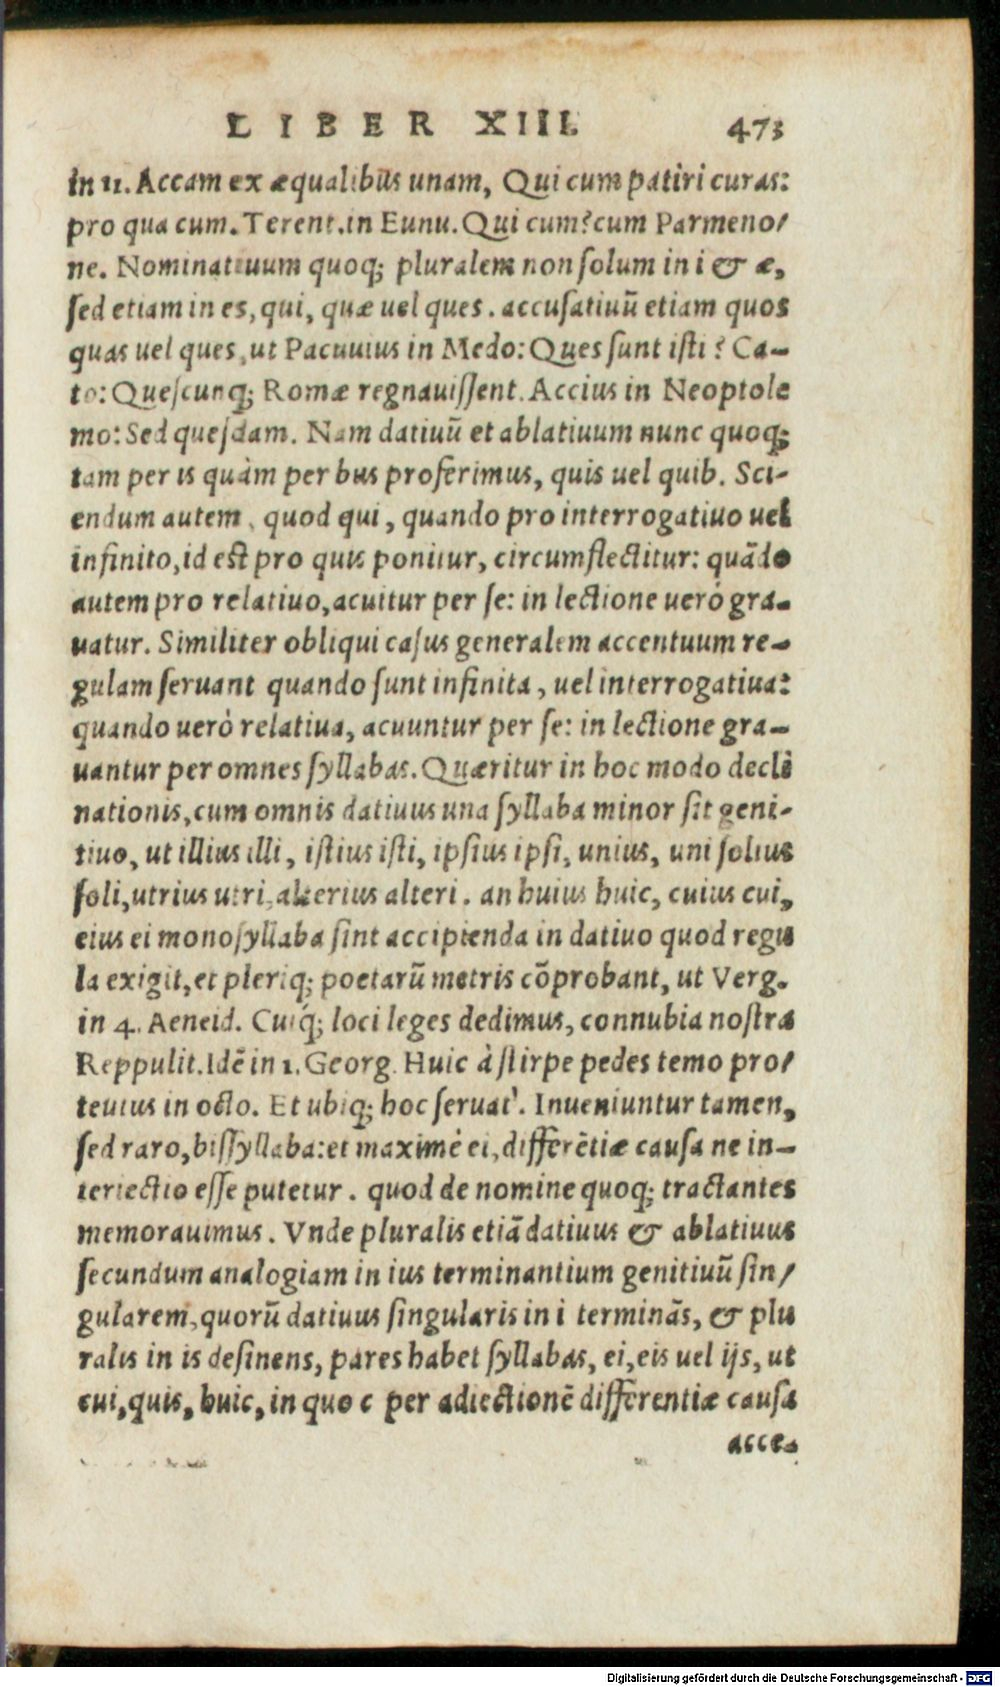 LIBER XIII. 473
in 11. Accam ex æqualibus unam, Qui cum patiri curas:
pro qua cum. Terent. in Eunu. Qui cum? cum Parmeno/
ne. Nominatiuum quoq; pluralem non ſolum in i & æ,
ſed etiam in es, qui, quæ uel ques. accuſatiuū etiam quos
quas uel ques, ut Pacuuius in Medo: Ques ſunt iſti? Ca-
to: Queſcunq; Romæ regnauiſſent. Accius in Neoptole
mo: Sed queſdam. Nam datiuū et ablatiuum nunc quoq;
tam per is quàm per bus proferimus, quis uel quib. Sci-
endum autem, quod qui, quando pro interrogatiuo uel
infinito, id est pro quis ponitur, circumflectitur: quādo
autem pro relatiuo, acuitur per ſe: in lectione uerò gra-
uatur. Similiter obliqui caſus generalem accentuum re-
gulam ſeruant quando ſunt infinita, uel interrogatiua:
quando uerò relatiua, acuuntur per ſe: in lectione gra-
uantur per omnes ſyllabas. Quæritur in hoc modo decli
nationis, cum omnis datiuus una ſyllaba minor ſit geni-
tiuo, ut illius illi, iſtius iſti, ipſius ipſi, unius, uni ſolius
ſoli, utrius utri, alterius alteri. an huius huic, cuius cui,
eius ei monoſyllaba ſint accipienda in datiuo quod regu
la exigit, et pleriq; poetarū metris cōprobant, ut Verg.
in 4. Aeneid. Cuiq́; loci leges dedimus, connubia noſtra
Reppulit. Idē in 1. Georg. Huic à ſtirpe pedes temo pro/
tentus in octo. Et ubiq; hoc ſeruat'. Inueniuntur tamen,
ſed raro, biſſyllaba: et maximè ei, differētiæ cauſa ne in-
teriectio eſſe putetur. quod de nomine quoq; tractantes
memorauimus. Vnde pluralis etiā datiuus & ablatiuus
ſecundum analogiam in ius terminantium genitiuū ſin/
gularem, quorū datiuus ſingularis in i terminās, & plu
ralis in is deſinens, pares habet ſyllabas, ei, eis uel ijs, ut
cui, quis, huic, in quo c per adiectionē differentiæ cauſa
acce-
Digitalisierung gefördert durch die Deutsche Forschungsgemeinschaft - DFG